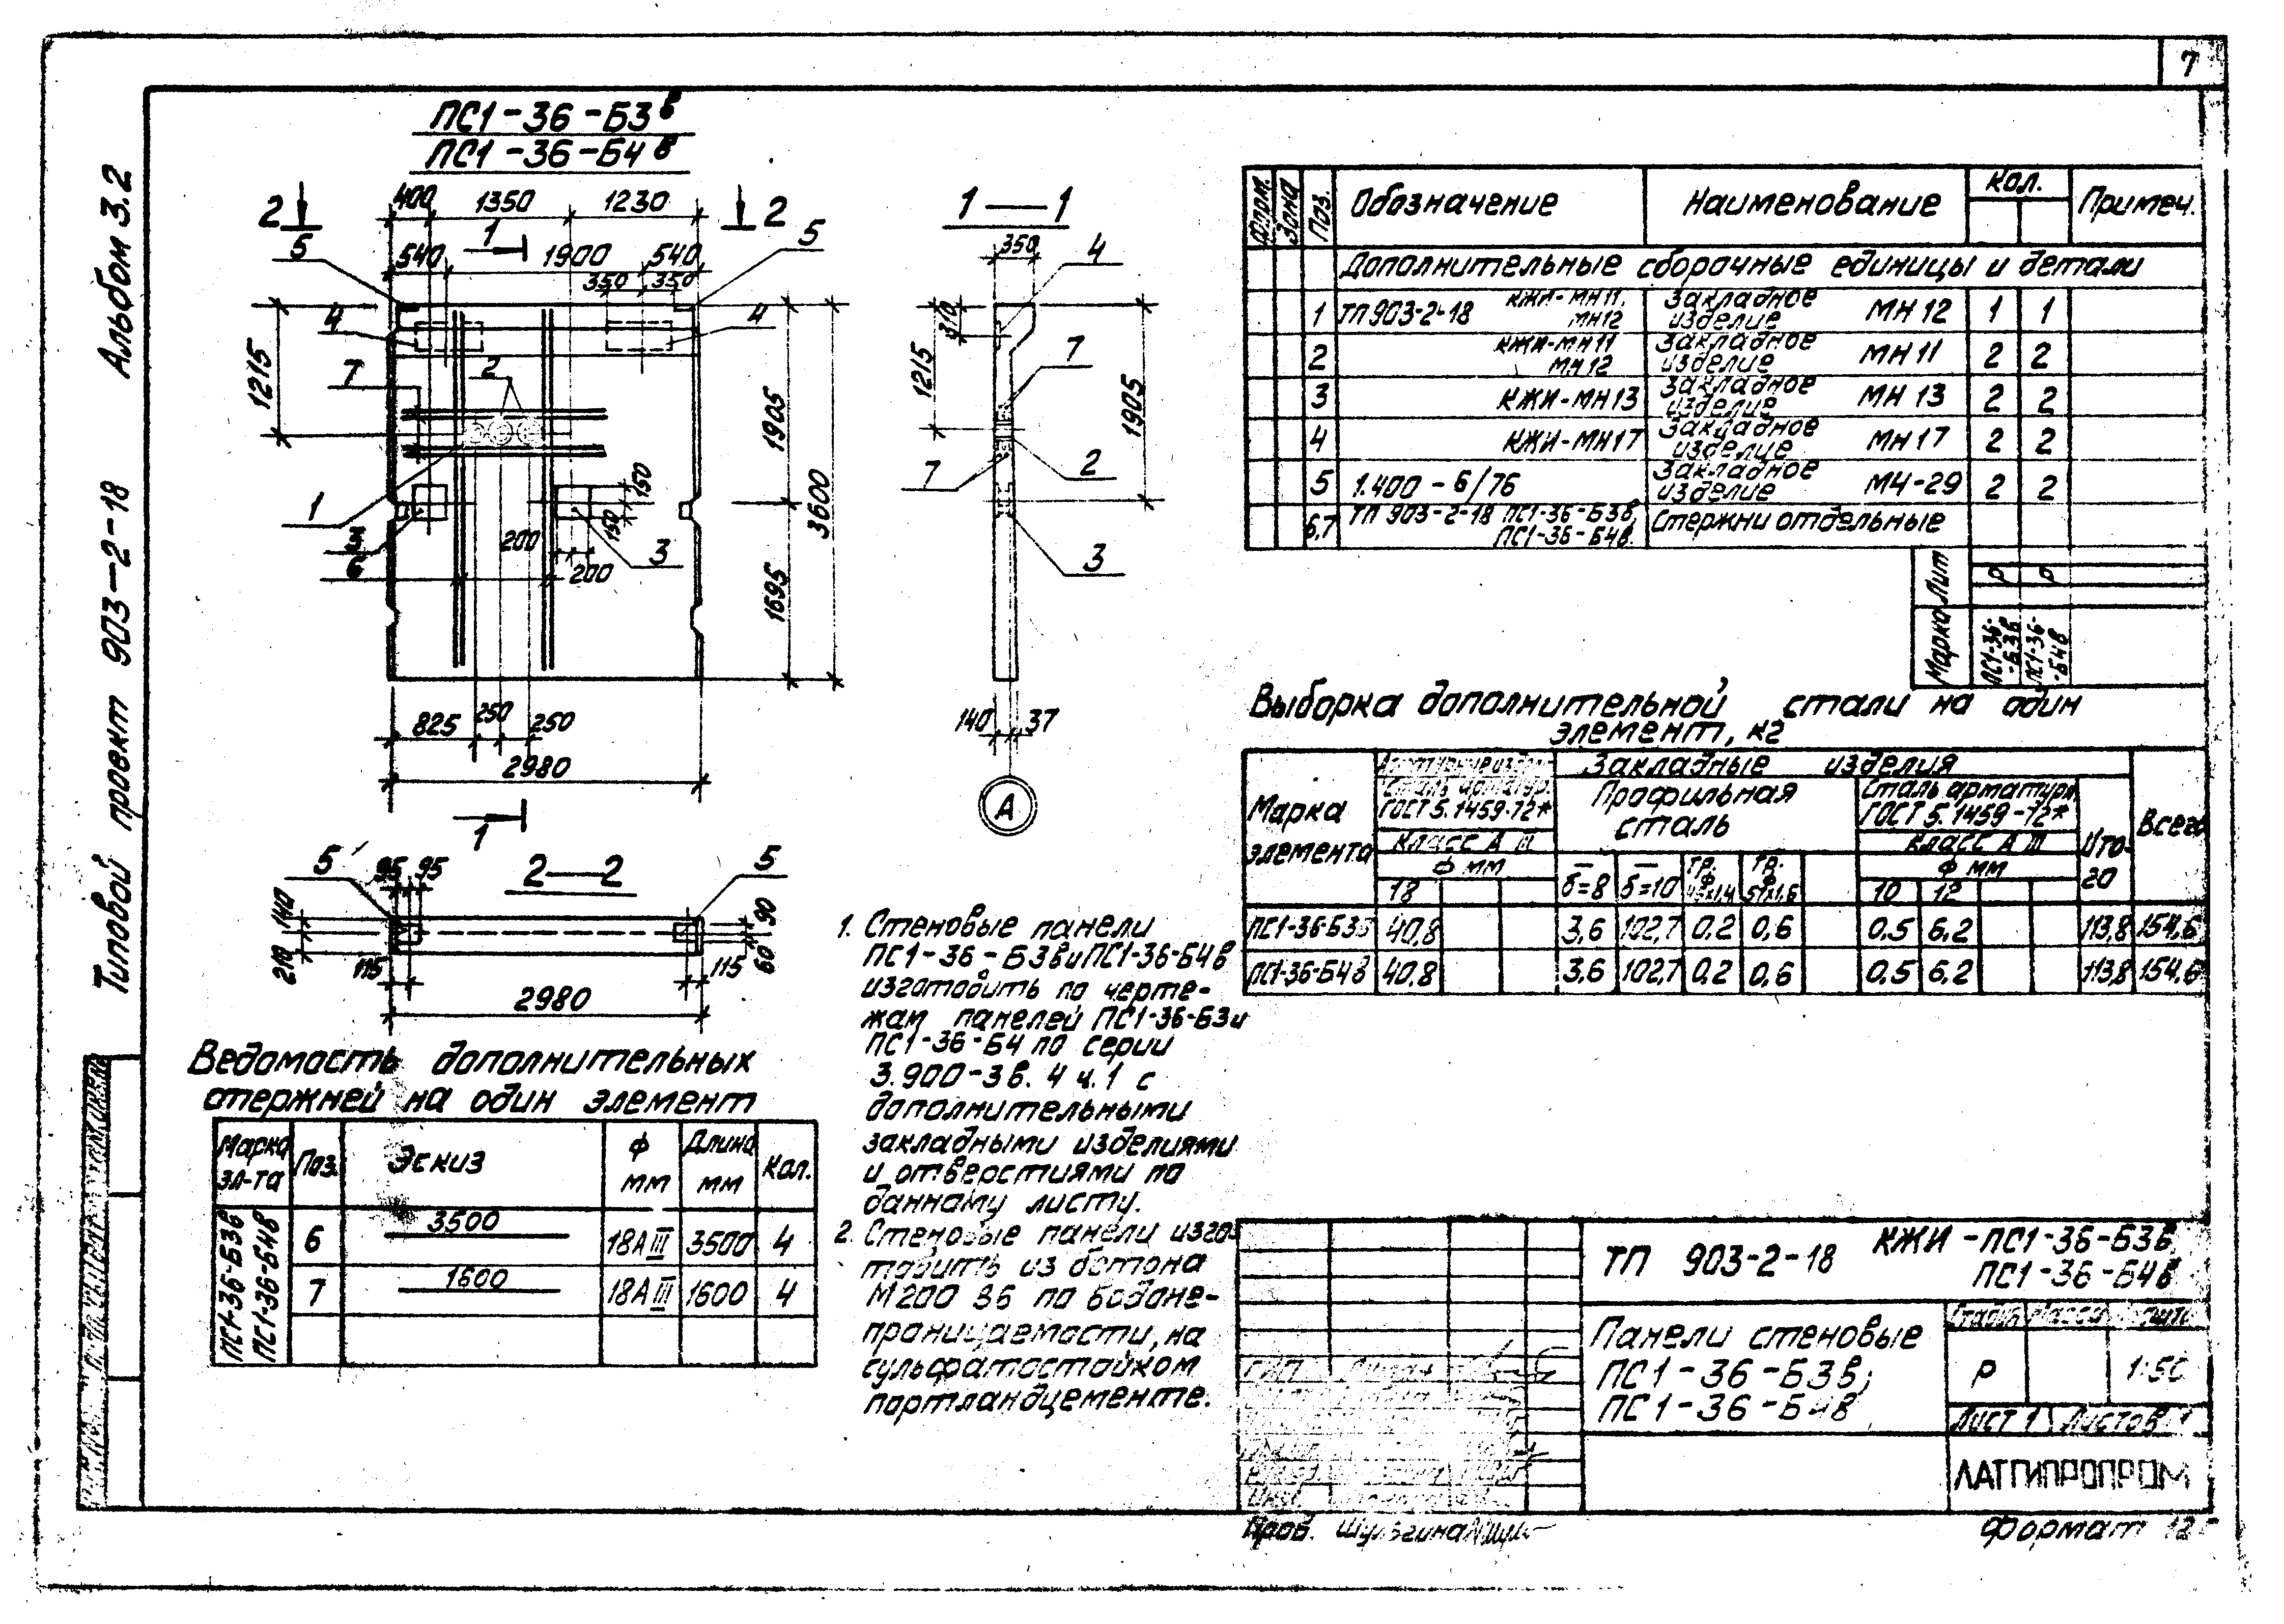 7
Альбом 3.2
Типовой проект 903-2-18
ПС1-36-Б3в
ПС1-36-Б4в
400 1350 1230
2 2
1
5 540 1900 540 5
350 350
4 4
7 2
1215
1905
3600
1695
1
150
150
200
200
3
825 250 250
2980
1
1—1
350
4
310
1215
7
1905
7 2
3
140 37
А
2—2
5 95 95 5
140
210
115 115
90
60
2980
Ведомость дополнительных
стержней на один элемент
Марка эл-та Поз. Эскиз ф мм Длина мм Кол.
ПС1-36-Б3в
ПС1-36-Б4в
6 3500 18АIII 3500 4
7 1600 18АIII 1600 4
1. Стеновые панели
ПС1-36-Б3в и ПС1-36-Б4в
изготовить по черте-
жам панелей ПС1-36-Б3 и
ПС1-36-Б4 по серии
3.900-3 в. 4 ч.1 с
дополнительными
закладными изделиями
и отверстиями по
данному листу.
2. Стеновые панели изго-
товить из бетона
М200 В6 по водоне-
проницаемости, на
сульфатостойком
портландцементе.
Форм. Зона Поз. Обозначение Наименование Кол. Примеч.
Дополнительные сборочные единицы и детали
1 ТП 903-2-18 КЖИ-МН11, МН12 Закладное изделие МН12 1 1
2 КЖИ-МН11 МН12 Закладное изделие МН11 2 2
3 КЖИ-МН13 Закладное изделие МН13 2 2
4 КЖИ-МН17 Закладное изделие МН17 2 2
5 1.400-6/76 Закладное изделие МЧ-29 2 2
6,7 ТП 903-2-18 ПС1-36-Б3в, ПС1-36-Б4в. Стержни отдельные
Лит Р Р
Марка ПС1-36-Б3в ПС1-36-Б4в
Выборка дополнительной стали на один
элемент, кг
Марка элемента
Сталь арматур. ГОСТ 5.1459-72*
Класс А III
ф мм
18
Закладные изделия
Профильная сталь
δ=8 δ=10
Сталь арматурн. ГОСТ 5.1459-72*
Класс А III
ф мм
10 12
Итого
Всего
ПС1-36-Б3в 40,8 3,6 102,7 0,2 0,6 0,5 6,2 113,8 154,6
ПС1-36-Б4в 40,8 3,6 102,7 0,2 0,6 0,5 6,2 113,8 154,6
ТП 903-2-18 КЖИ-ПС1-36-Б3в,
ПС1-36-Б4в
Панели стеновые
ПС1-36-Б3в;
ПС1-36-Б4в
Стадия Масса
Р 1:50
Лист 1 Листов 1
ЛАТГИПРОПРОМ
ГИП
Пров. Шульгина
Формат 12